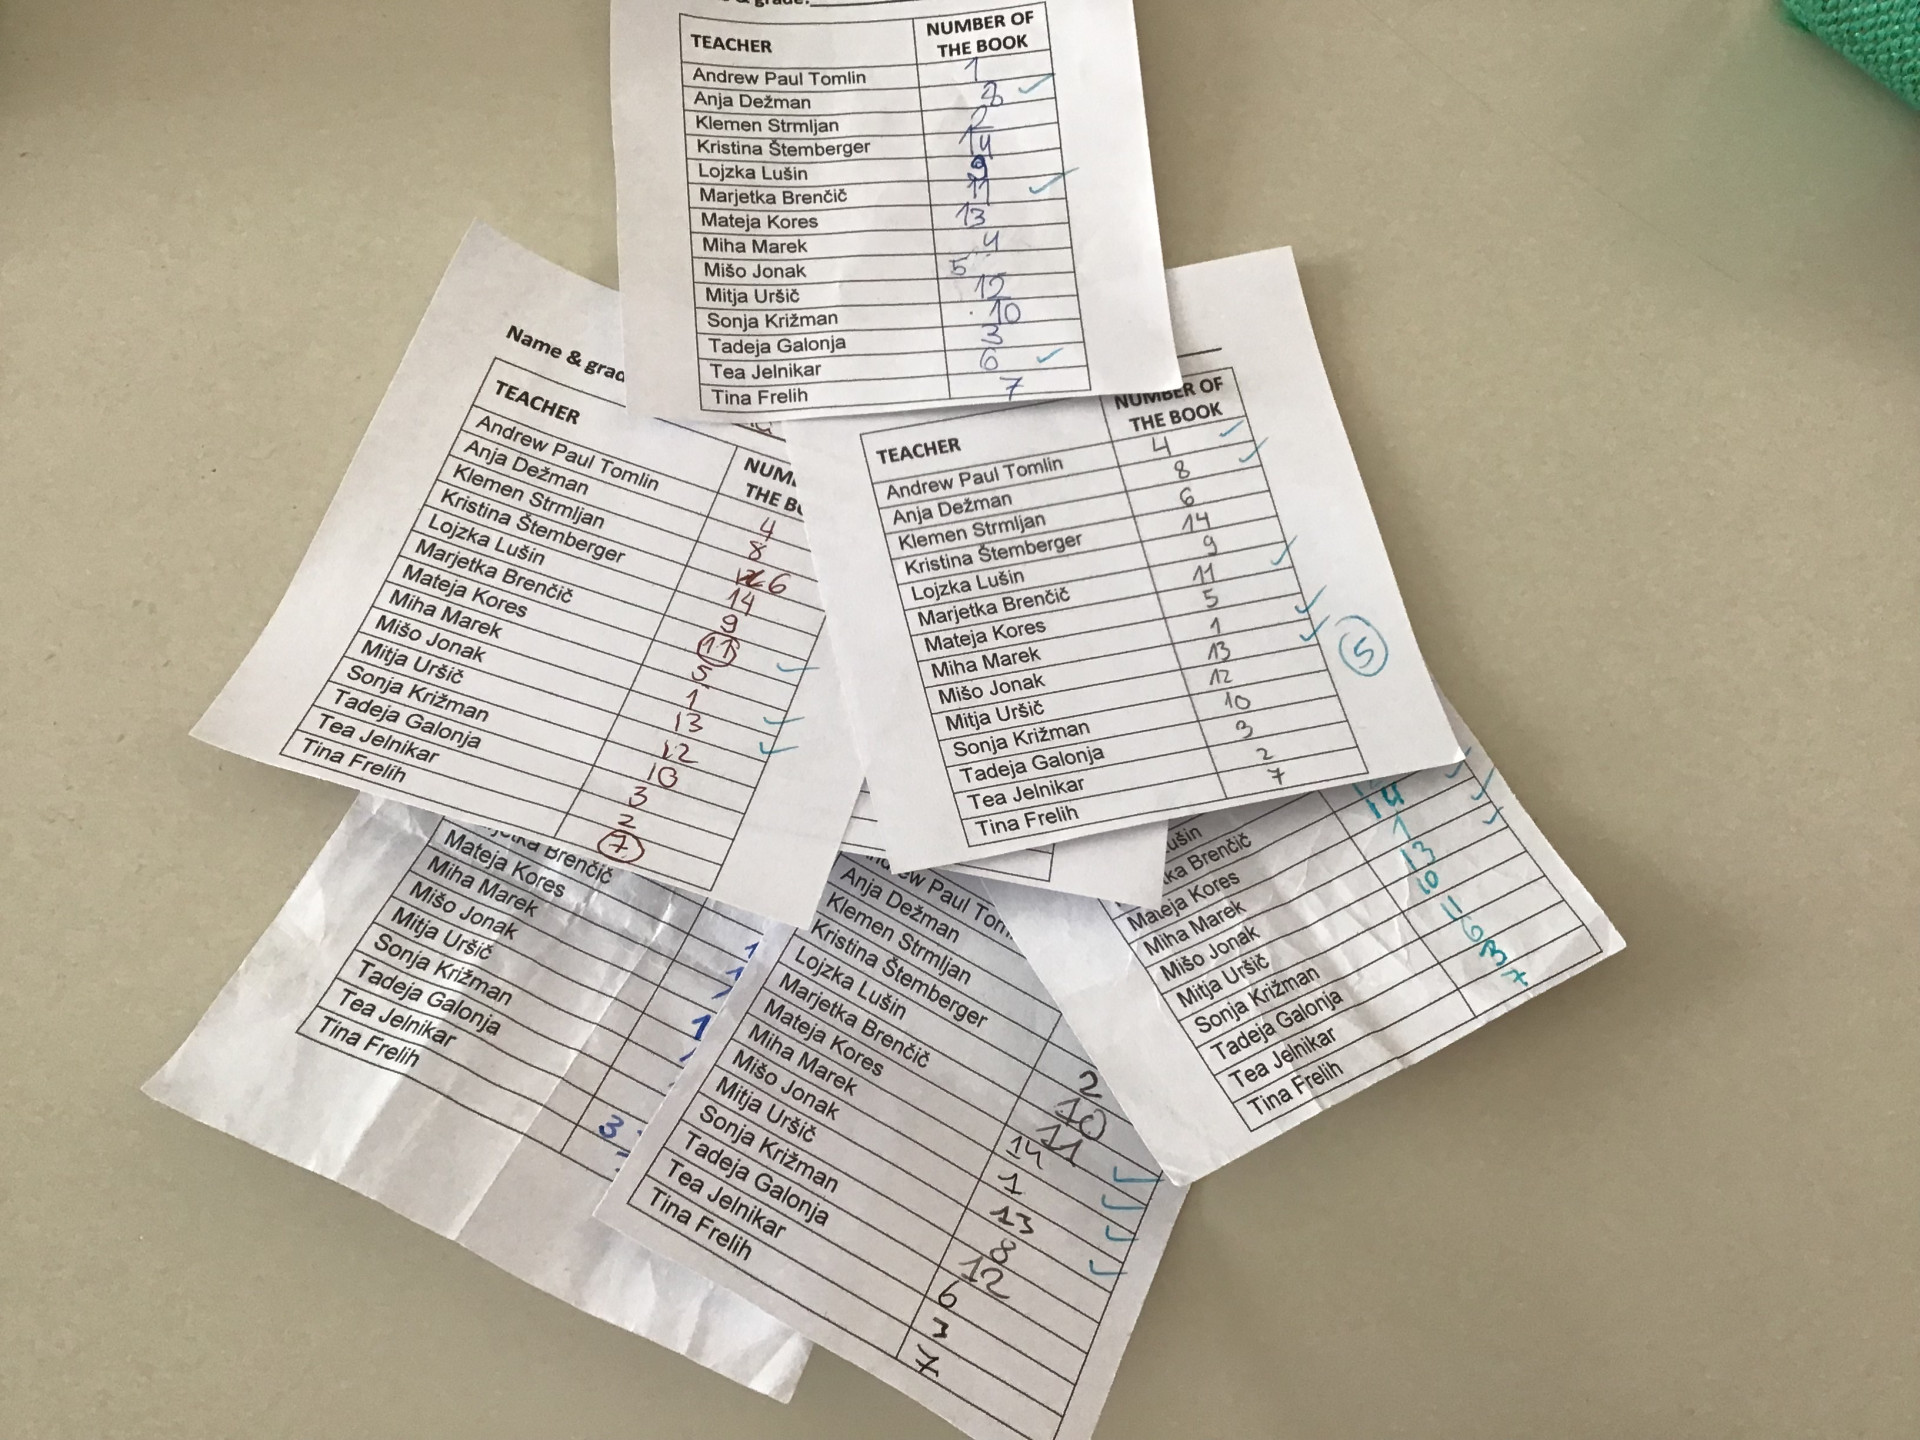 TEACHER NUMBER OF
THE BOOK
Andrew Paul Tomlin 1
Anja Dežman 8
Klemen Strmljan 2
Kristina Štemberger 14
Lojzka Lušin 9
Marjetka Brenčič 11
Mateja Kores 13
Miha Marek 4
Mišo Jonak 5
Mitja Uršič 12
Sonja Križman 10
Tadeja Galonja 3
Tea Jelnikar 6
Tina Frelih 7
Name &
TEACHER
THE
Andrew Paul Tomlin 4
Anja Dežman 8
Klemen Strmljan 6
Kristina Štemberger 14
Lojzka Lušin 9
Marjetka Brenčič 11
Mateja Kores 5
Miha Marek 1
Mišo Jonak 13
Mitja Uršič 12
Sonja Križman 10
Tadeja Galonja 3
Tea Jelnikar 2
Tina Frelih 7
TEACHER NUMBER OF
THE BOOK
Andrew Paul Tomlin 4
Anja Dežman 8
Klemen Strmljan 6
Kristina Štemberger 14
Lojzka Lušin 9
Marjetka Brenčič 11
Mateja Kores 5
Miha Marek 1
Mišo Jonak 13
Mitja Uršič 12
Sonja Križman 10
Tadeja Galonja 3
Tea Jelnikar 2
Tina Frelih 7
5
Brenčič
Mateja Kores
Miha Marek
Mišo Jonak
Mitja Uršič
Sonja Križman
Tadeja Galonja
Tea Jelnikar 3
Tina Frelih
Paul
Anja Dežman
Klemen Strmljan
Kristina Štemberger
Lojzka Lušin 2
Marjetka Brenčič 10
Mateja Kores 11
Miha Marek 14
Mišo Jonak 1
Mitja Uršič 13
Sonja Križman 8
Tadeja Galonja 12
Tea Jelnikar 6
Tina Frelih 3
7
Brenčič 14
Mateja Kores 1
Miha Marek 13
Mišo Jonak 10
Mitja Uršič 11
Sonja Križman 6
Tadeja Galonja 3
Tea Jelnikar 7
Tina Frelih